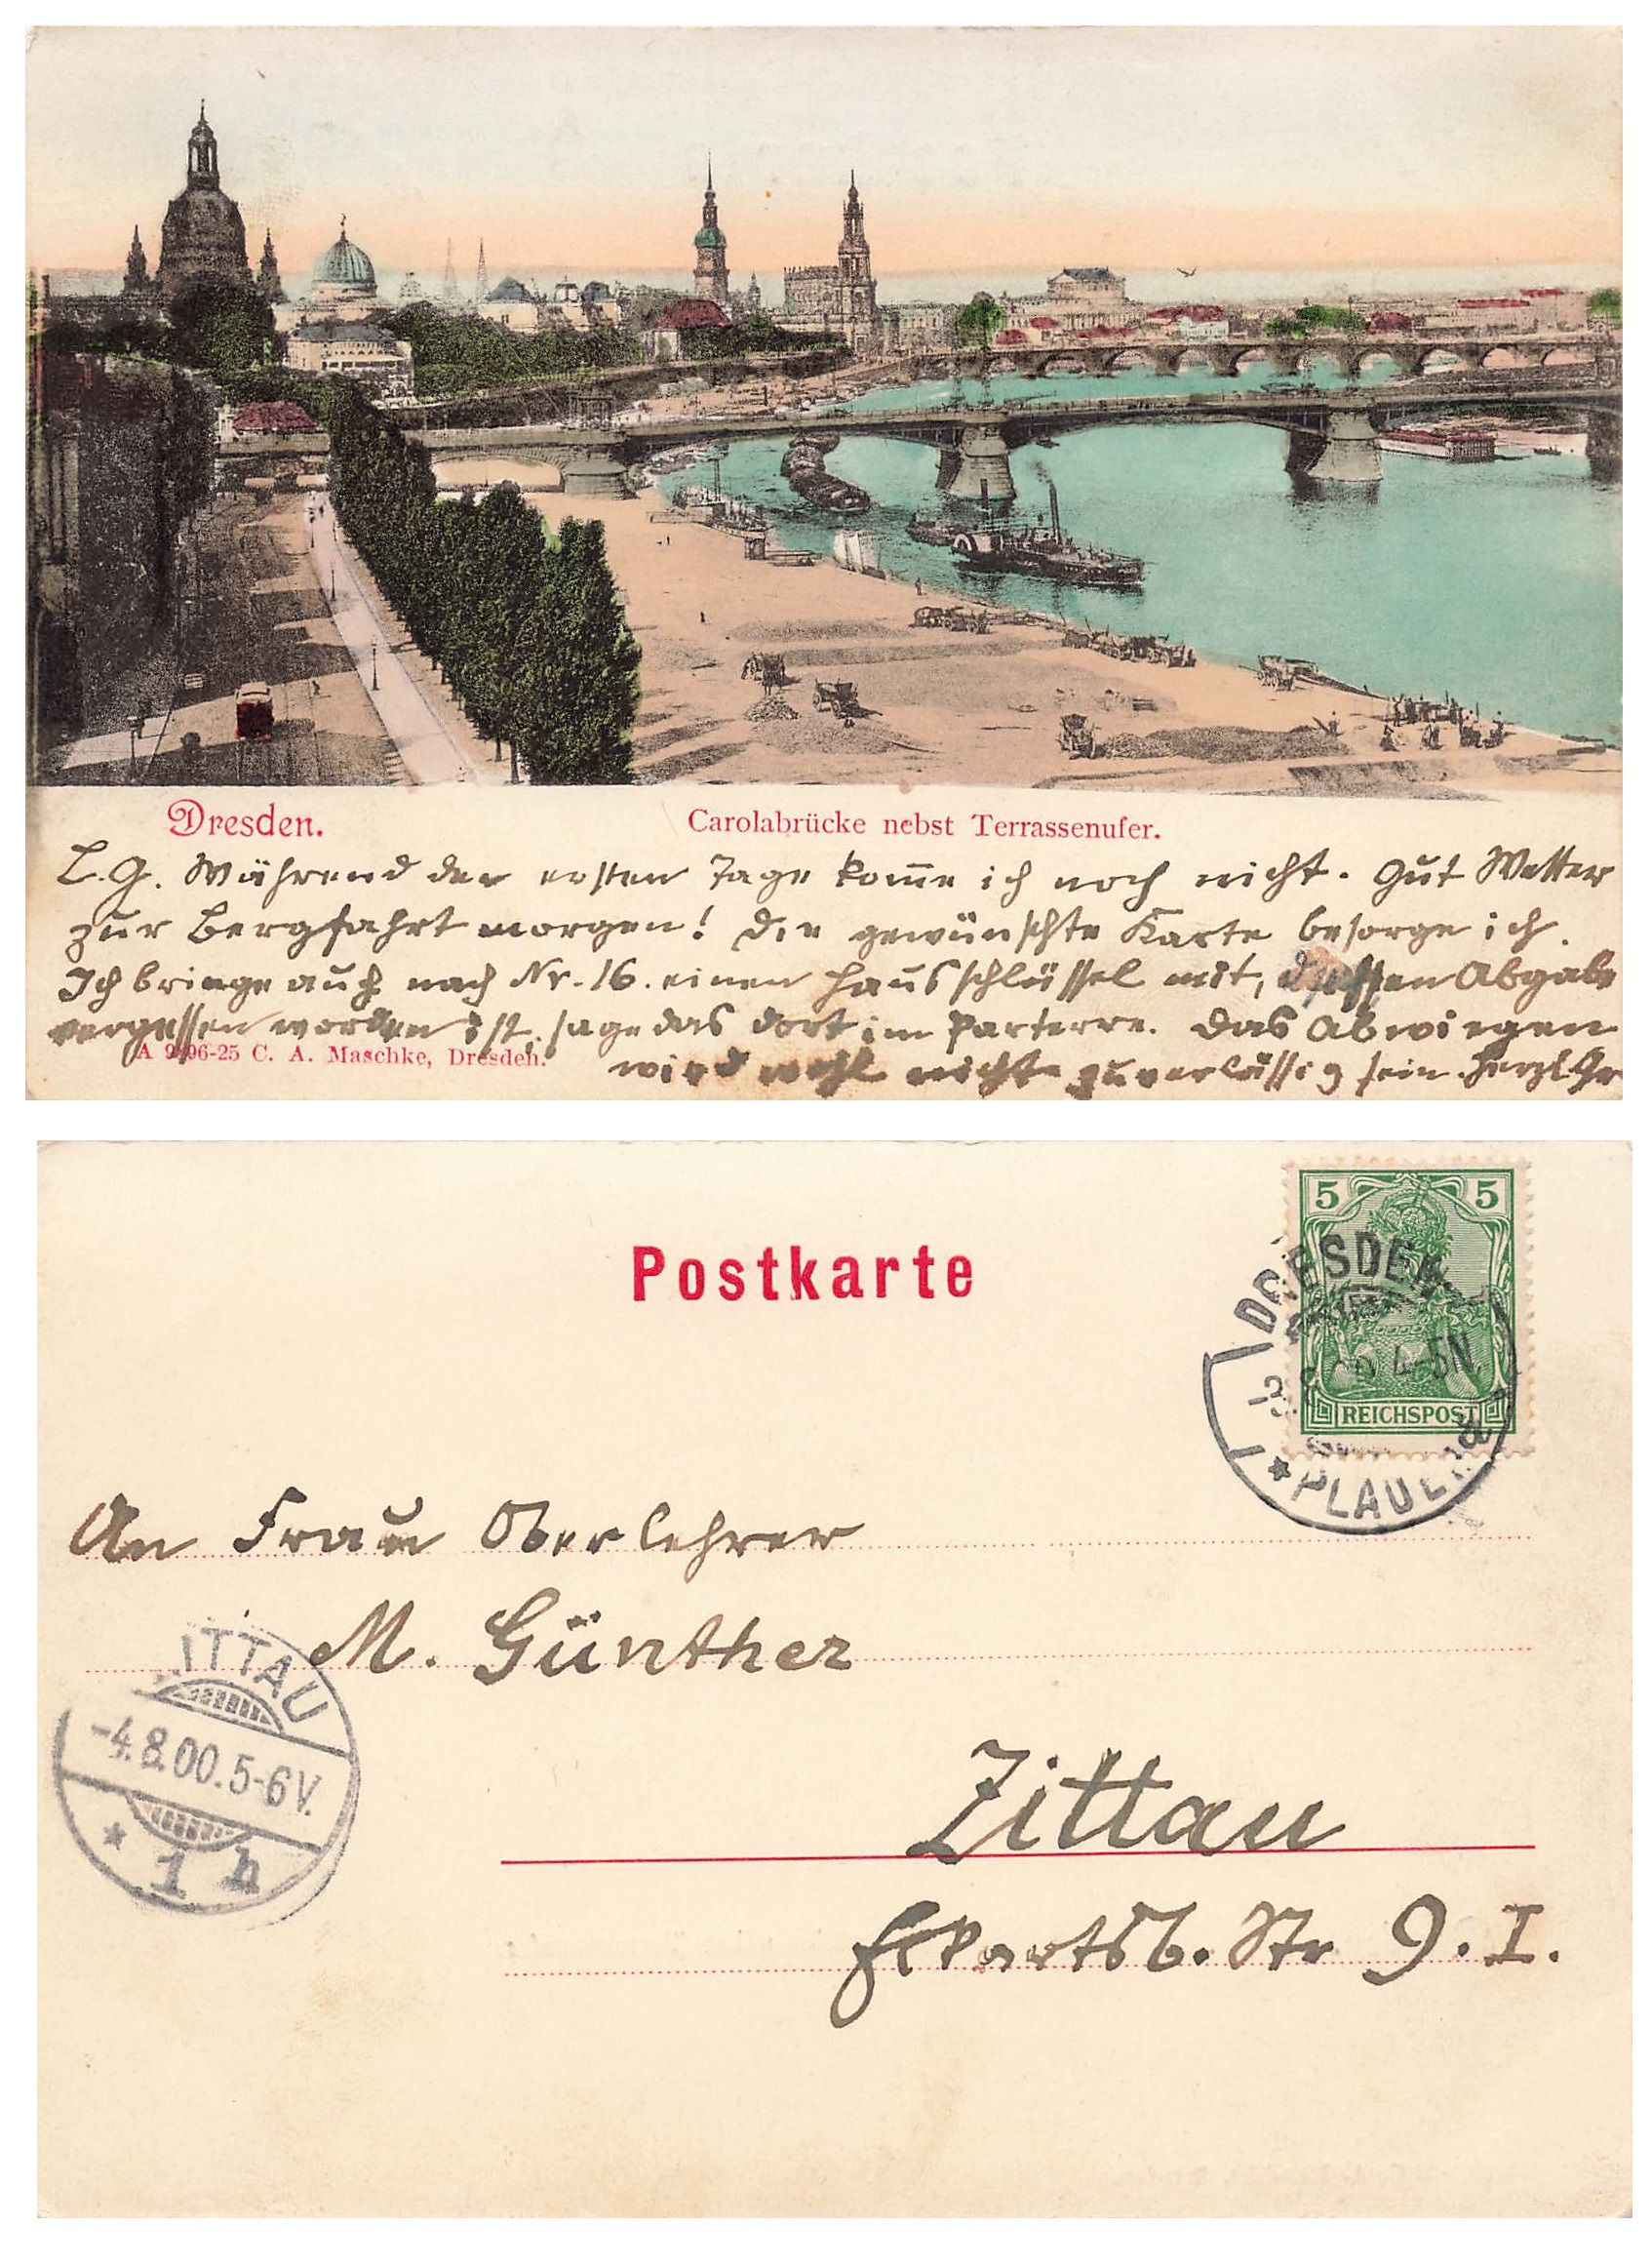 Dresden.
Carolabrücke nebst Terrassenufer.
L. G. Während der ersten Tage kom̅e ich noch nicht. Gut Wetter
zur Bergfahrt morgen! Die gewünschte Karte besorge ich.
Ich bringe auch nach Nr. 16. einen Hausschlüssel mit, dessen Abgabe
vergessen worden ist, sage das dort im Parterre. Das Abwiegen
A 9296-25 C. A. Maschke, Dresden.
wird wohl nicht zuverlässig sein. Herzl. Gr
Postkarte
5 5
REICHSPOST
DRESDEN
4-5N.
* PLAUEN
An Frau Oberlehrer
M. Günther
Zittau
Eckartsb. Str 9. I.
ZITTAU
-4.8.00.5-6V.
* 1 h